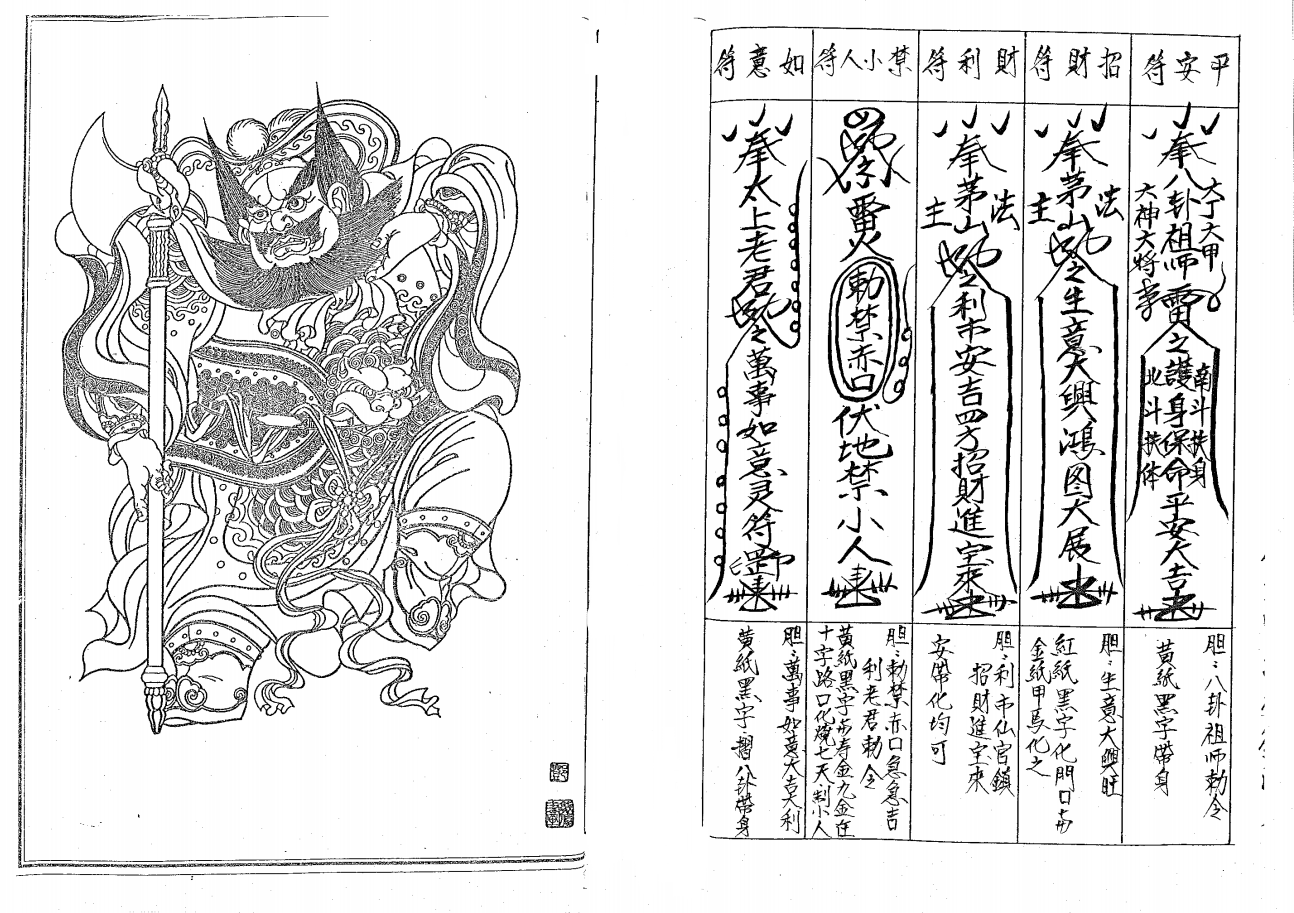 平安符
奉八卦祖師雷之護身保命平安大吉
大丁大甲
大神大将
南斗扶身
北斗扶体
胆:八卦祖师勅令
黄紙黑字帶身
招財符
奉茅山之生意大興鴻图大展
法
主
胆:生意大興旺
紅紙黑字化門口
金紙甲馬化之
財利符
奉茅山之利市安吉四方招財進宝來
法
主
胆:利市仙官鎮
招財進宝來
安帶化均可
禁小人符
雷火
勅禁赤口
伏地禁小人
胆:勅禁赤口急急吉
利老君勅令
黄紙黑字寿金九金在
十字路口化燒七天制小人
如意符
奉太上老君之萬事如意灵符罡
胆:萬事如意大吉大利
黄紙黑字摺八卦帶身